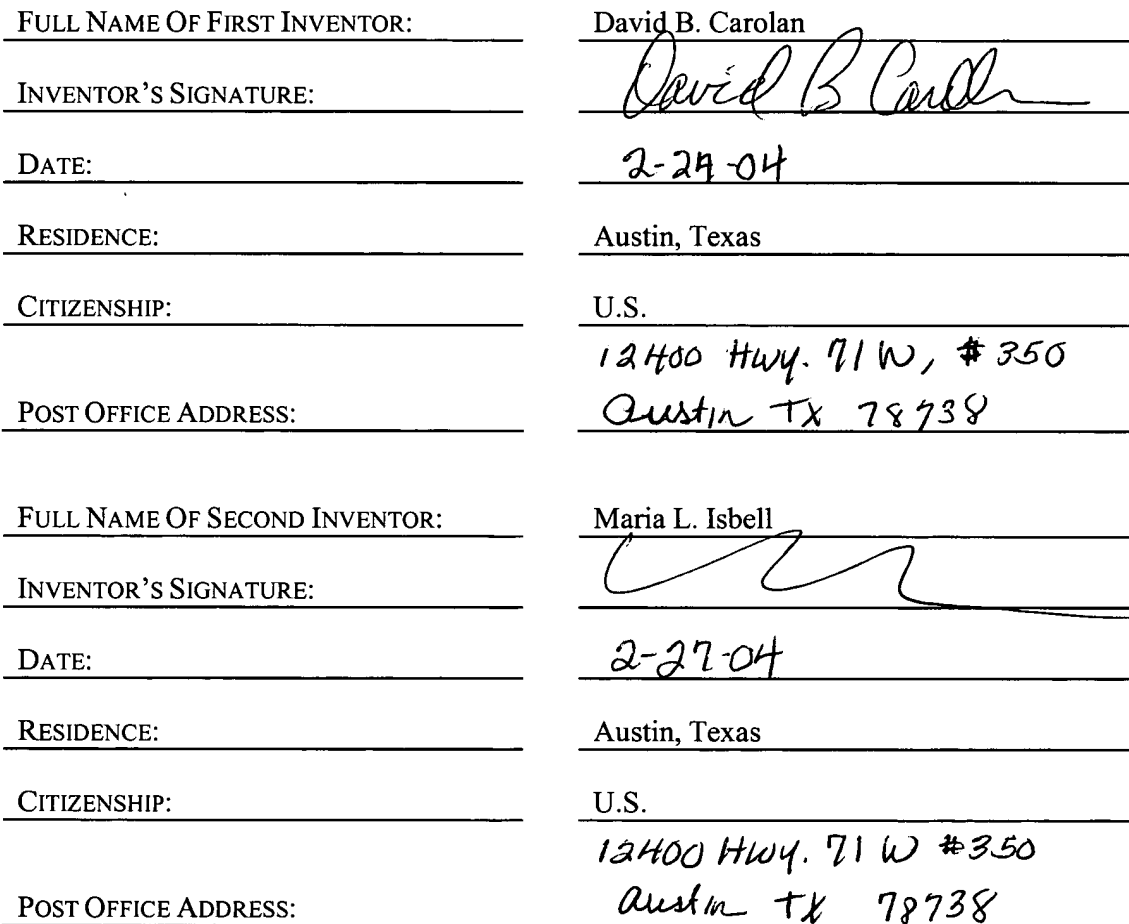 FULL NAME OF FIRST INVENTOR: David B. Carolan
INVENTOR'S SIGNATURE: David B Carolan
DATE: 2-27-04
RESIDENCE: Austin, Texas
CITIZENSHIP: U.S.
12400 Hwy. 71 W, #350
POST OFFICE ADDRESS: Austin TX 78738
FULL NAME OF SECOND INVENTOR: Maria L. Isbell
INVENTOR'S SIGNATURE:
DATE: 2-27-04
RESIDENCE: Austin, Texas
CITIZENSHIP: U.S.
12400 Hwy. 71 W #350
POST OFFICE ADDRESS: Austin TX 78738